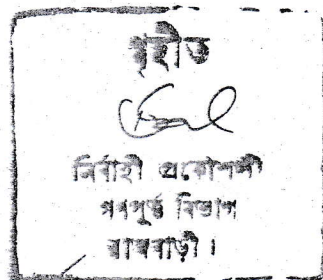 গৃহীত
নির্বাহী প্রকৌশলী
গণপূর্ত বিভাগ
রাজবাড়ী।